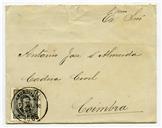 Exmo Snr
Antonio José d'Almeida
Cadeia Civil
Coimbra